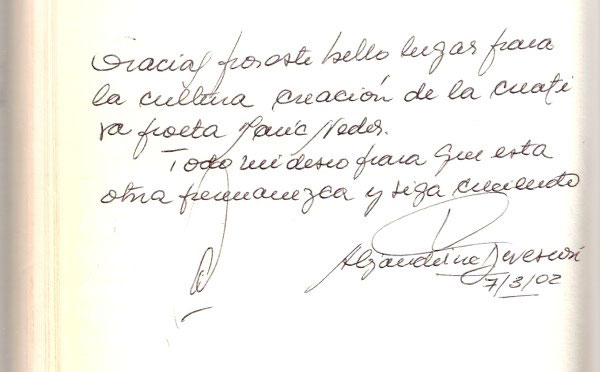 Gracias por este bello lugar para
la cultura creación de la creati
va poeta
Todo mi deseo para que esta
obra permanezca y siga creciendo
Alejandrina Devescovi
7/3/02